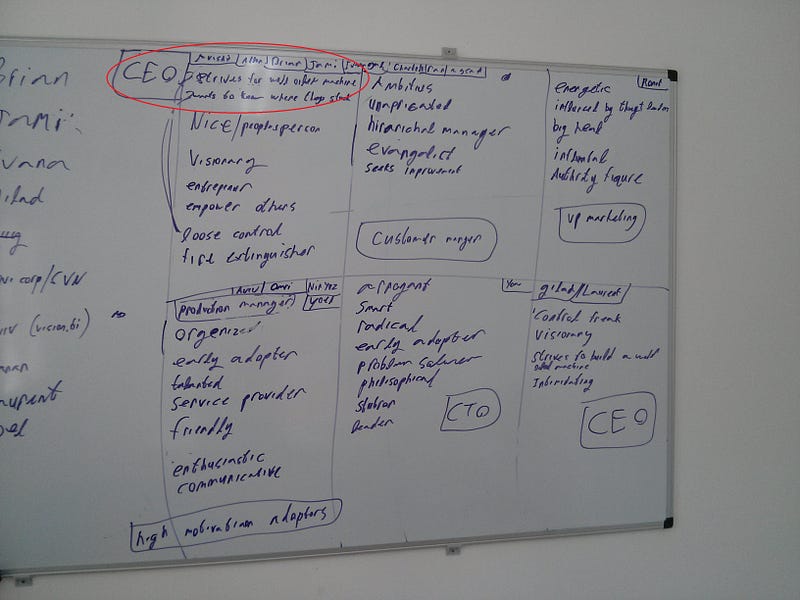 Brian
Jami
ivana
Gilad
corp/CVN
(vision.bi)
CEO
Avishi Alon Brian Jami
strives for well oiled machine
to know where things stand
Nice/peoplesperson
Visionary
entrepener
empower others
loose control
fire extinguisher
Ambitius
unapriciated
hirarichal manager
evangalist
seeks improvement
Customer manger
Ronit
energetic
influenced by thought leaders
big head
influental
Authirity figure
VP marketing
Aviv Omri Nir
production manager
Yoel
organized
early adopter
talented
service provider
friendly
enthusiastic
communicative
high motivation adaptors
arrogant
Smart
radical
early adopter
problem solver
philisophical
stubron
Leader
CTO
gilad/Laurent
Control freak
Visionary
strives to build a well
oiled machine
Intimidating
CEO